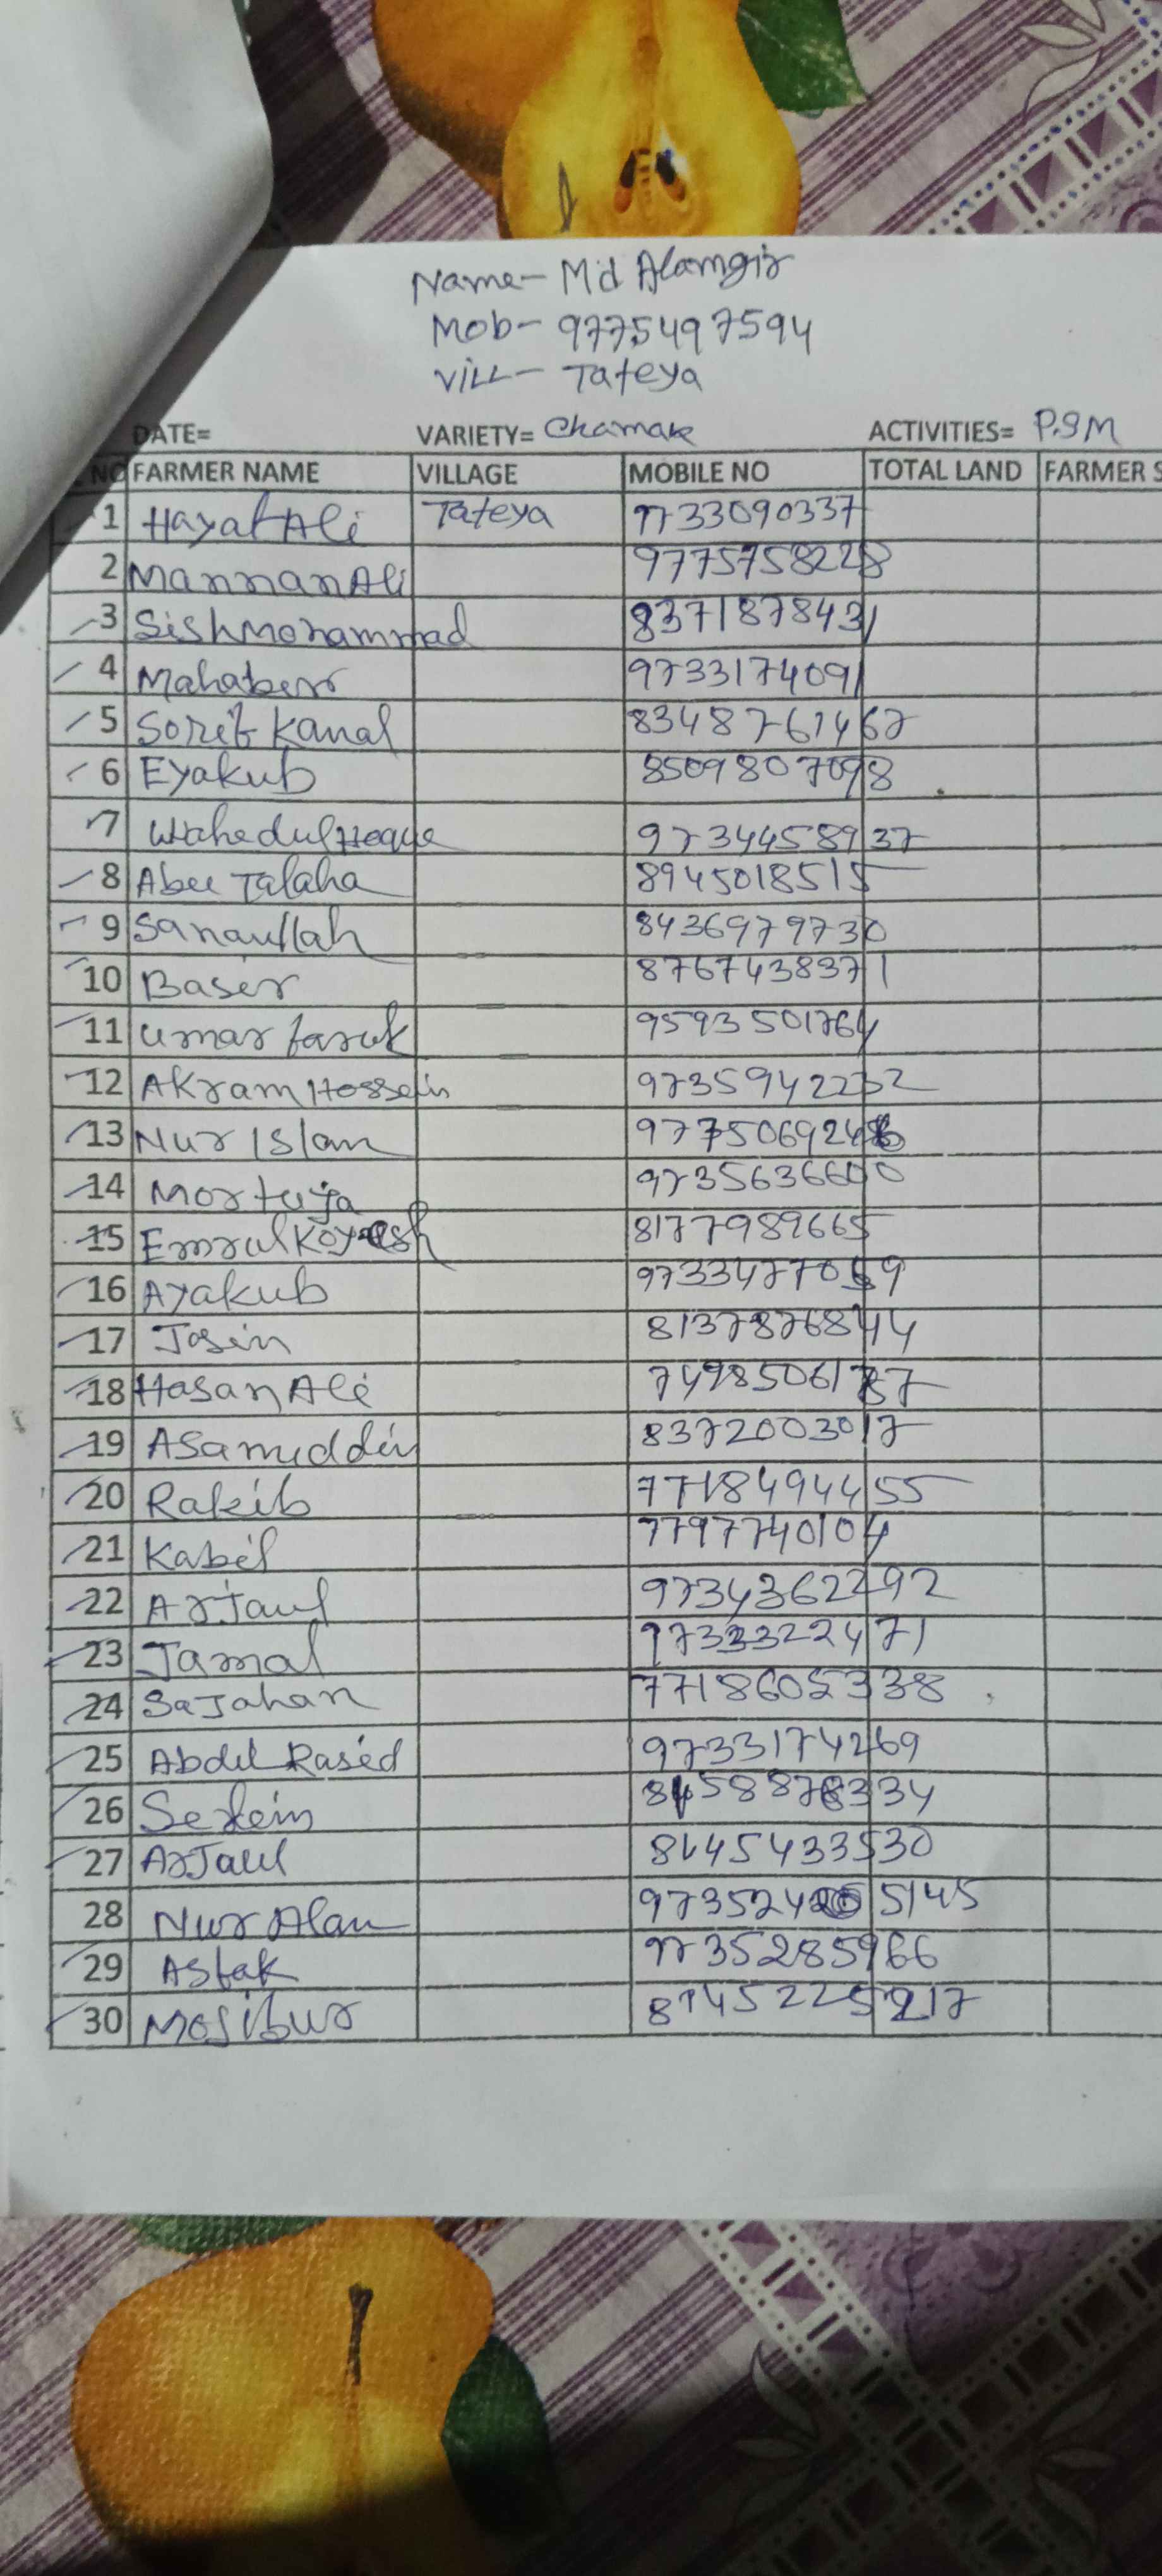 Name- Md Alamgir
Mob- 9775497594
Vill- Tateya
DATE= VARIETY= Chamak ACTIVITIES= P.S.M
NO FARMER NAME VILLAGE MOBILE NO TOTAL LAND FARMER S
1 Hayat Ali Tateya 9733090337
2 Mannan Ali 9775758228
3 Sish Mohammad 8371878431
4 Mahabur 9733174091
5 Sorif Kamal 8348761467
6 Eyakub 8509807098
7 Wahedul Hoque 9734458937
8 Abu Talaha 8945018515
9 Sanaullah 8436979730
10 Baser 8767438371
11 Umar faruk 9593501764
12 Akram Hossein 9735942232
13 Nur Islam 977506924
14 Mortuja 9735636600
15 Emrul 8177989665
16 Ayakub 9733477059
17 Josin 8137876844
18 Hasan Ali 7498506187
19 Asamuddin 8372003017
20 Rakib 7718494455
21 Kabil 7797740104
22 ArJaul 9734362292
23 Jamal 9733322471
24 SaJahan 7718605338
25 Abdul Rased 9733174269
26 334
27 ArJaul 8145433530
28 Nur Alam 5145
29 Asfak 9735285966
30 Mosibur